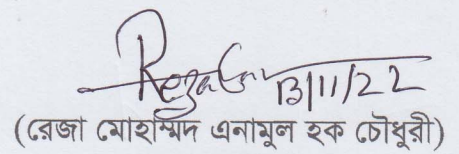 Reza 13/11/22
(রেজা মোহাম্মদ এনামুল হক চৌধুরী)